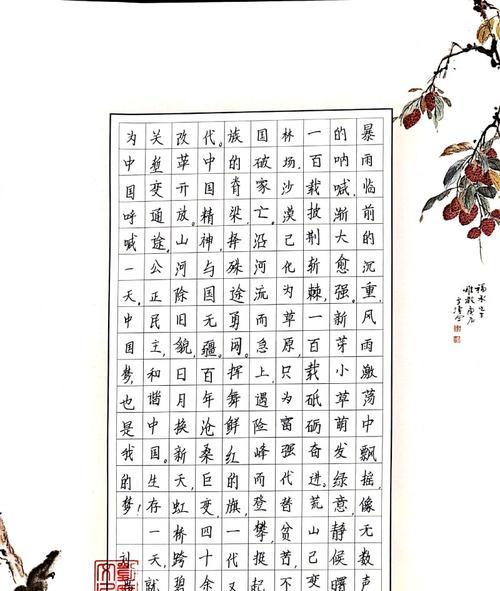 暴雨临前的沉重,风雨激荡中飘摇,像无数声
的呐喊,渐大愈强。新芽小草萌发绿意,静候曙
一百载披荆斩棘,一百载砥砺奋进。荒山已变
林场,沙漠已化为草原,只为富强代替贫苦,不
国破家亡。沿河流而急上,遇险峰而登攀,挺起
族的脊梁,择殊途勇闯。挥舞鲜红的旗,一代又
代。中国精神,与国无疆。百年沧桑巨变,四十余
改革开放。山河除旧貌,日月换新天,虹桥跨碧
关堑变通途。公正民主,和谐中国。生存一天,就
为中国呼喊一天。中国梦,也是我的梦!